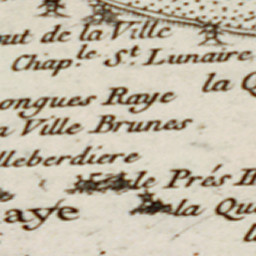 out de la Ville
Chap.le St. Lunaire
la Q
ongues Raye
a Ville Brunes
lleberdiere
le Prés
aye
la Qu